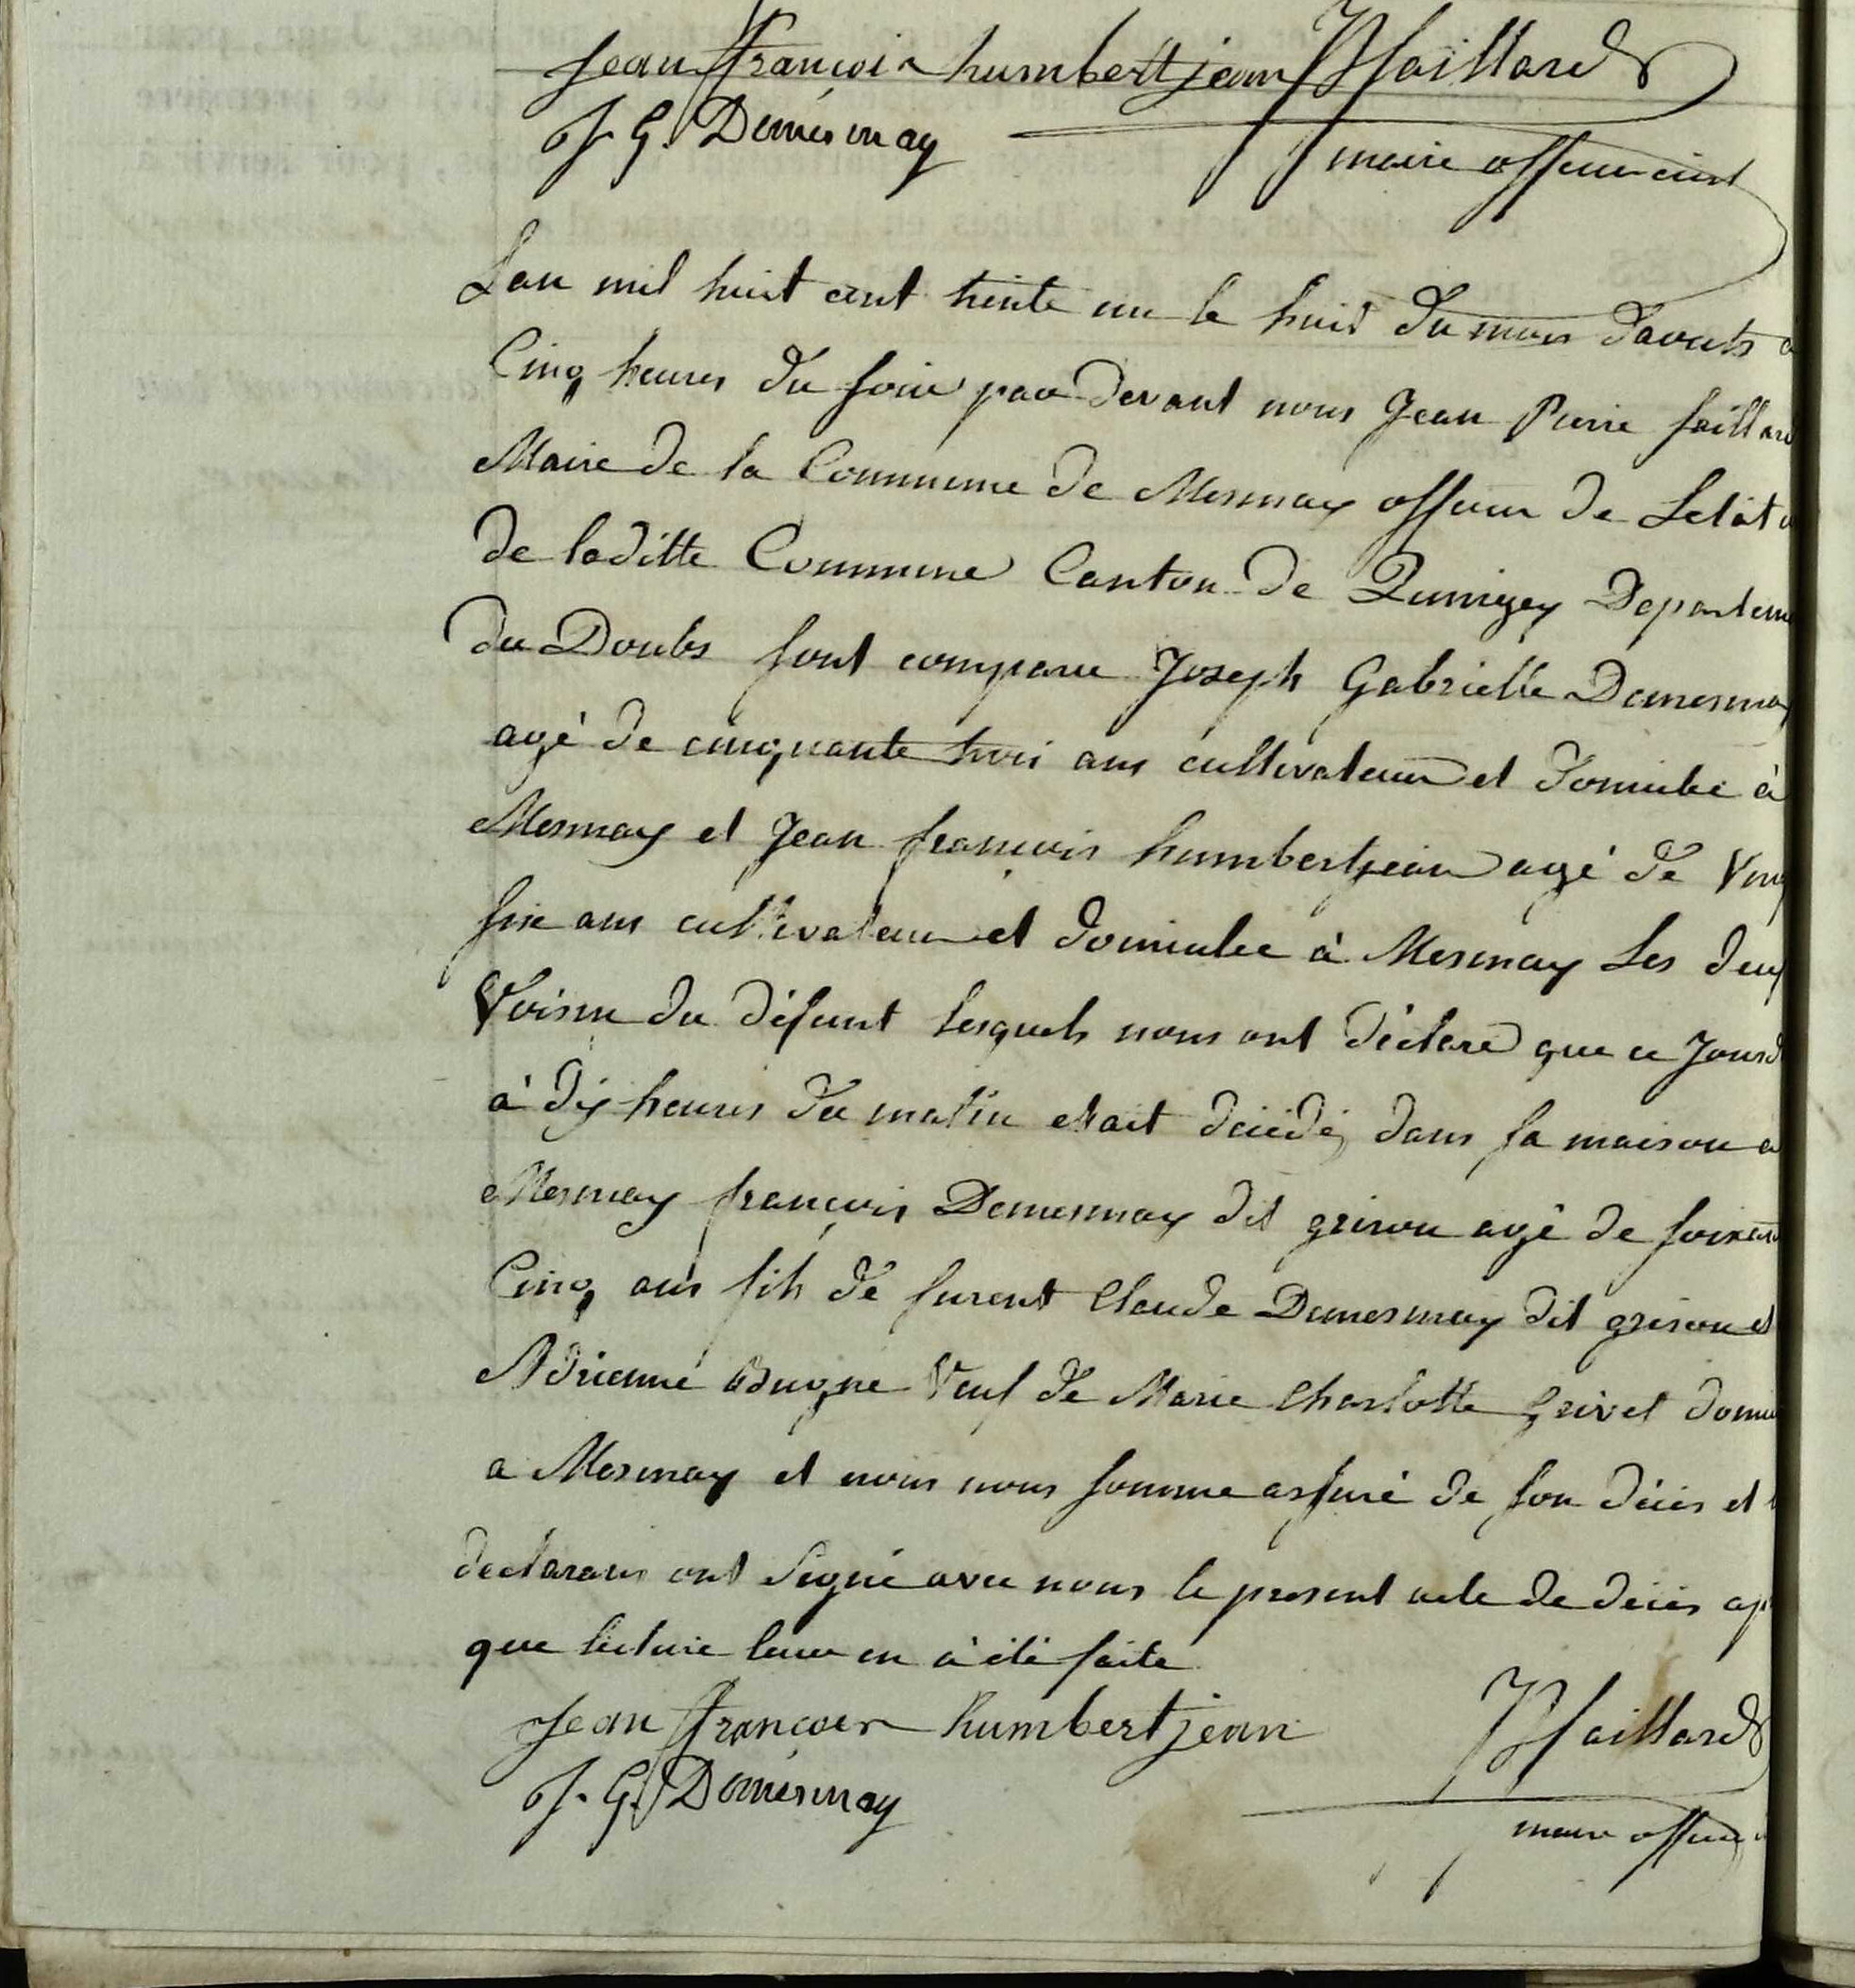 Jean françois humbertjean JP faillard
J. G. Demesmay
maire officier civil
Lan mil huit cent trente un le huit du mois davouts a
Cinq heures du soir par devant nous Jean Pierre faillard
Maire de la Commune de Mesmay officier de Letat
de laditte Commune Canton de Quingey Departeme
du Doubs sont comparu Joseph Gabrielle Demesmay
agé de cinquante trois ans cultivateur et domicilié à
Mesmay et Jean françois humbertjean agé de Vingt
six ans cultivateur et domicilie à Mesmay Les deux
Voisin du défunt lesquels nous ont déclaré que ce Jourd
à dix heures du matin etait décédé dans sa maison a
Mesmay françois Demesmay dit grison agé de soixante
Cinq ans fils de furent Claude Demesmay dit grison et
Adrienne Bugne Veuf de Marie Charlotte Grivet domi
a Mesmay et nous nous somme assuré de son décès et
declarans ont Signé avec nous le present acte de décès ap
que lecture leur en à été faite
Jean françois humbertjean
JP faillard
J. G. Demesmay
maire officier